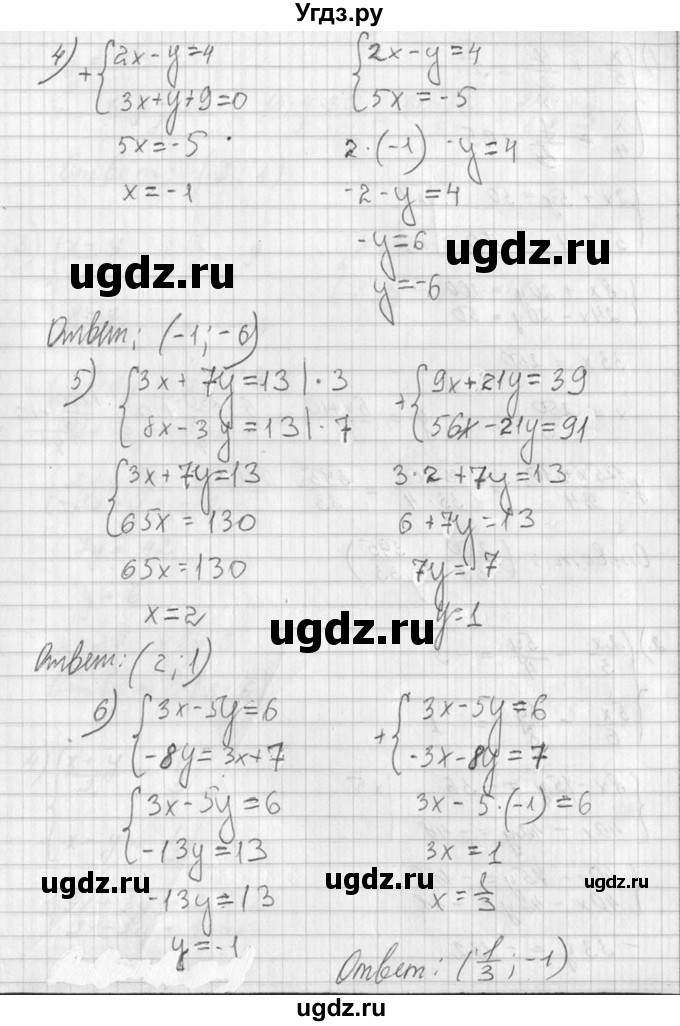 Угдз.ру
4) + { 2x - y = 4
3x + y + 9 = 0
5x = -5
x = -1
{ 2x - y = 4
5x = -5
2·(-1) - y = 4
-2 - y = 4
-y = 6
y = -6
ugdz.ru
ugdz.ru
Ответ: (-1; -6)
5) { 3x + 7y = 13 | · 3
8x - 3y = 13 | · 7
+ { 9x + 21y = 39
56x - 21y = 91
{ 3x + 7y = 13
65x = 130
65x = 130
x = 2
3·2 + 7y = 13
6 + 7y = 13
7y = 7
y = 1
ugdz.ru
Ответ: (2; 1)
6) { 3x - 5y = 6
-8y = 3x + 7
+ { 3x - 5y = 6
-3x - 8y = 7
{ 3x - 5y = 6
-13y = 13
-13y = 13
y = -1
3x - 5·(-1) = 6
3x = 1
x = 1/3
ugdz.ru
ugdz.ru
ugdz.ru
Ответ: (1/3; -1)
ugdz.ru